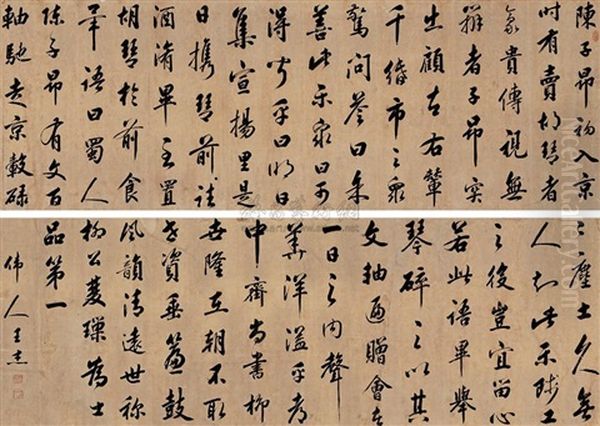 陳子昂初入京
时有賣胡琴者
豪貴傳視無
辨者子昂突
出顧左右輦
千緡市之衆
驚問答曰余
善此樂衆曰可
得聞乎曰明日
集宣揚里是
日攜琴前詣
酒淆畢置
胡琴於前食
畢語曰蜀人
陳子昂有文百
軸馳走京轂碌
〻塵土久無
人知此樂賤工
之役豈宜留心
若此語畢舉
琴碎之以其
文軸遍贈會者
一日之内聲
華洋溢乎都
中齊尚書柳
世隆在朝不取
世資垂簾鼓
風韻清遠世称
柳公雙璅為士
品第一
偉人王杰